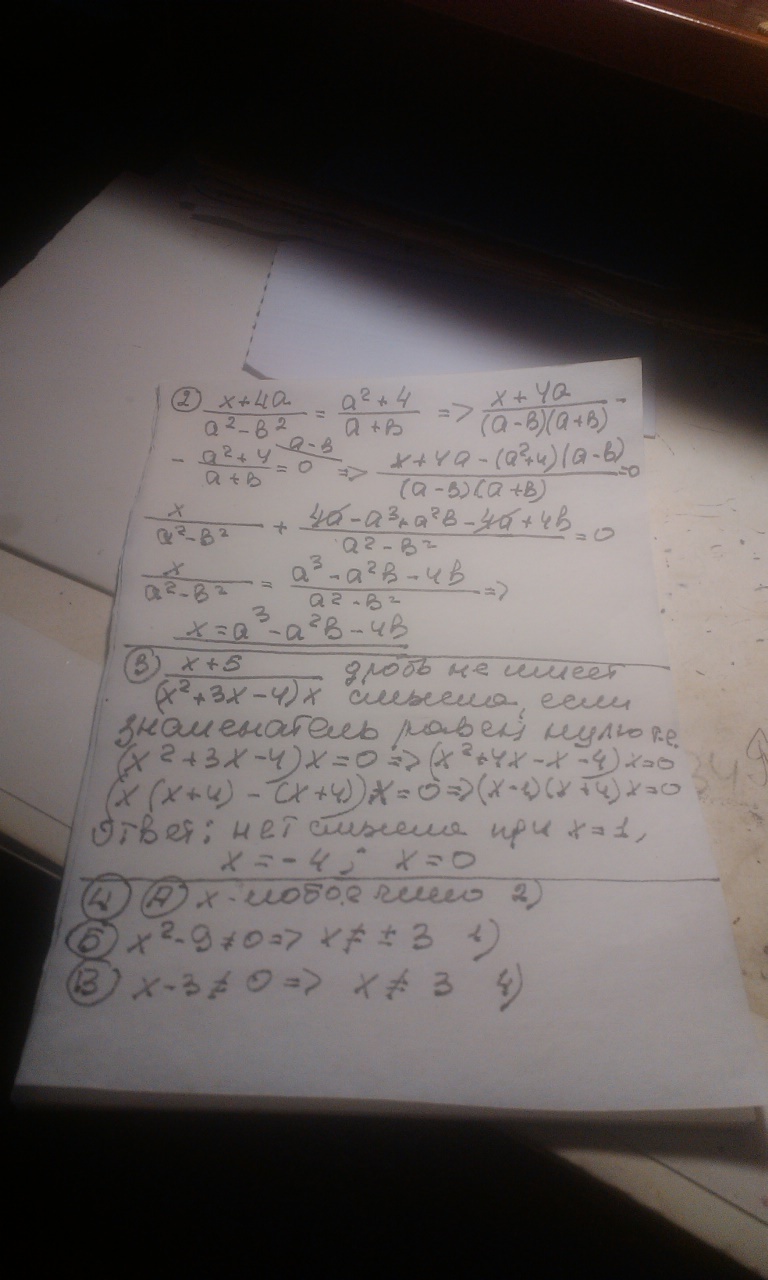 ② (x+4a)/(a²-в²) = (a²+4)/(a+в) => (x+4a)/((a-в)(a+в)) -
- (a²+4)/(a+в) ^(a-в) = 0 => (x+4a-(a²+4)(a-в))/((a-в)(a+в)) = 0
x/(a²-в²) + (4a-a³+a²в-4a+4в)/(a²-в²) = 0
x/(a²-в²) = (a³-a²в-4в)/(a²-в²) =>
x = a³-a²в-4в
③ (x+5)/((x²+3x-4)x) дробь не имеет
смысла, если
знаменатель равен нулю т.е.
(x²+3x-4)x=0 => (x²+4x-x-4)x=0
(x(x+4)-(x+4))x=0 => (x-1)(x+4)x=0
Ответ: нет смысла при x=1,
x=-4; x=0
④ Ⓐ x-любое число 2)
Ⓑ x²-9≠0 => x≠±3 1)
Ⓑ x-3≠0 => x≠3 4)